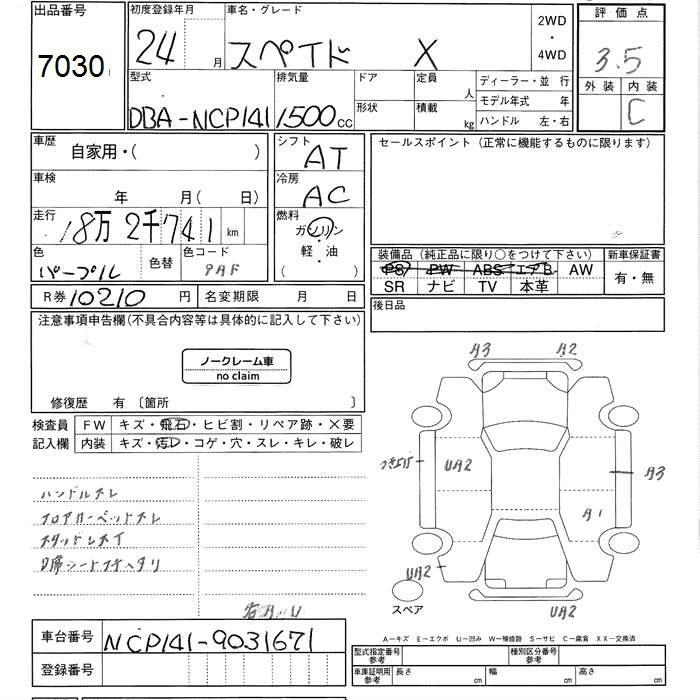 出品番号
7030
初度登録年月
24 月
車名・グレード
スペイド X
2WD
・
4WD
評価点
3.5
外装 内装
C
型式
DBA-NCP141
排気量
1500 CC
ドア
形状
定員
人
積載
kg
ディーラー・並 行
モデル年式 年
ハンドル 左・右
車歴
自家用・( )
車検
年 月( 日)
走行
18万 2千741 km
色
パープル
色替
色コード
9AF
シフト
AT
冷房
AC
燃料
ガソリン
軽・油
( )
R券 10210 円
名変期限 月 日
セールスポイント (正常に機能するものに限ります)
装備品 (純正品に限り○をつけて下さい)
PS PW ABS エアB AW
SR ナビ TV 本革
新車保証書
有・無
後日品
注意事項申告欄 (不具合内容等は具体的に記入して下さい)
ノークレーム車
no claim
修復歴 有 〔箇所 〕
検査員
記入欄
FW キズ・飛石・ヒビ割・リペア跡・×要
内装 キズ・汚レ・コゲ・穴・スレ・キレ・破レ
ハンドルスレ
フロアカーペットスレ
D席シート
A3 A2
UA2
A3
A1
UA2
UA2
スペア
A－キズ E－エクボ U－凹み W－補修跡 S－サビ C－腐食 XX－交換済
車台番号
NCP141-9031671
登録番号
型式指定番号
参考
種別区分番号
参考
車庫証明用
参考
長さ cm
幅 cm
高さ cm